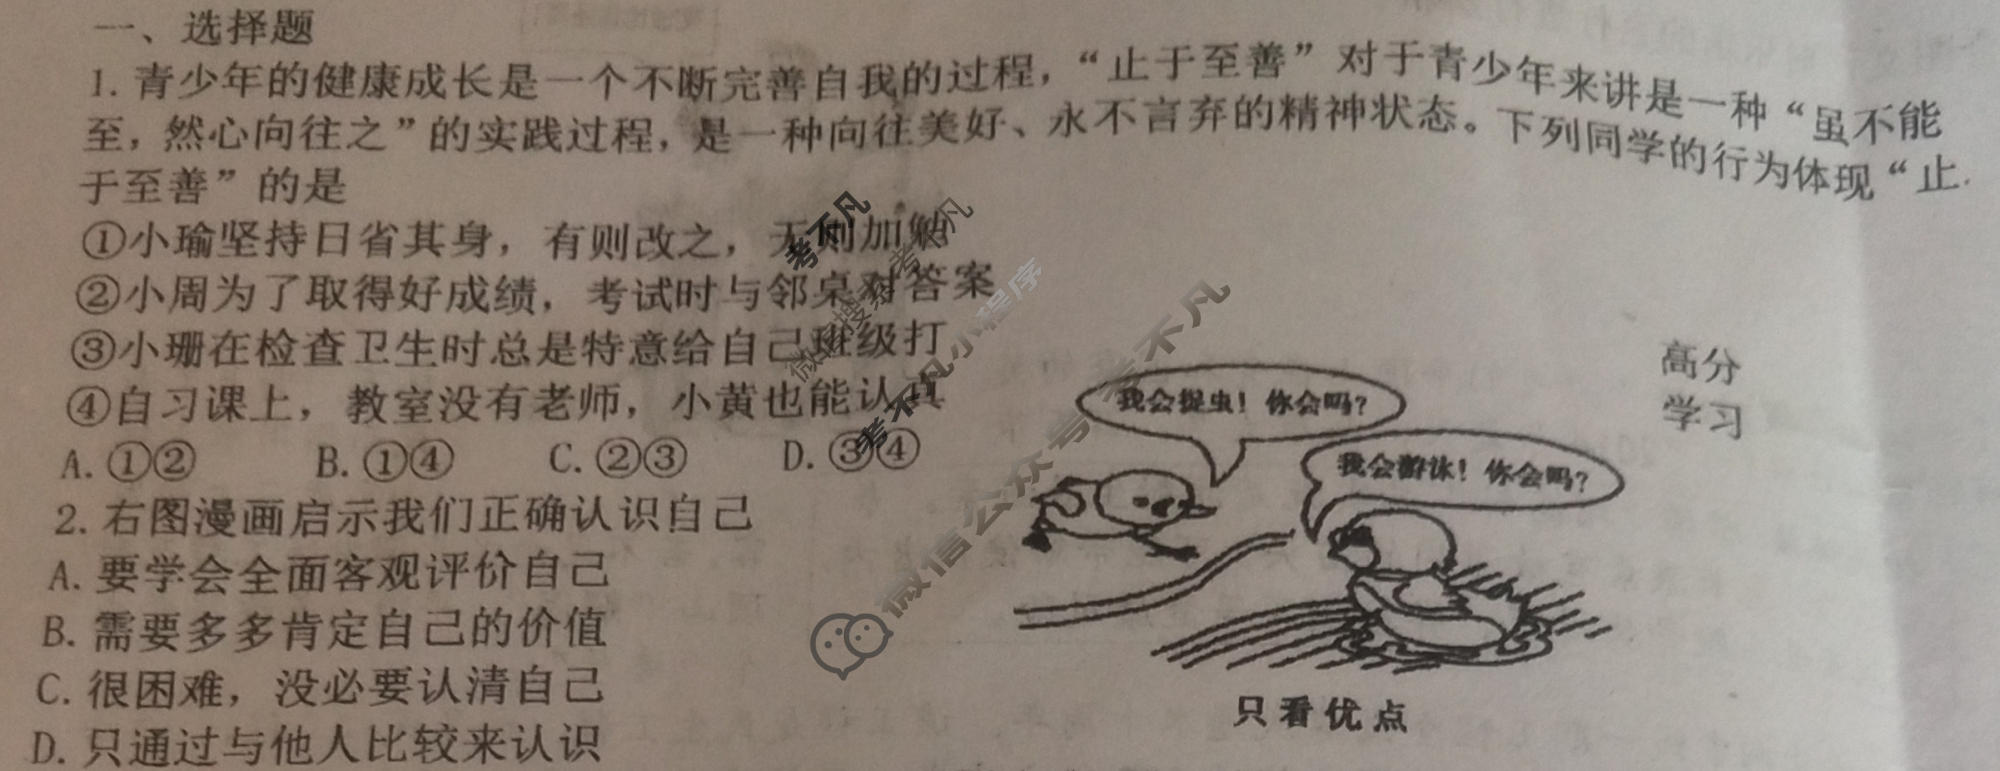 一、选择题
1. 青少年的健康成长是一个不断完善自我的过程，“止于至善”对于青少年来讲是一种“虽不能
至，然心向往之”的实践过程，是一种向往美好、永不言弃的精神状态。下列同学的行为体现“止
于至善”的是
①小瑜坚持日省其身，有则改之，无则加勉
②小周为了取得好成绩，考试时与邻桌对答案
③小珊在检查卫生时总是特意给自己班级打 高分
④自习课上，教室没有老师，小黄也能认真 学习
A. ①② B. ①④ C. ②③ D. ③④
2. 右图漫画启示我们正确认识自己
A. 要学会全面客观评价自己
B. 需要多多肯定自己的价值
C. 很困难，没必要认清自己
D. 只通过与他人比较来认识
我会捉虫！你会吗？
我会游泳！你会吗？
只看优点
考不凡
微信搜索 考不凡
考不凡小程序
微信公众号 考不凡